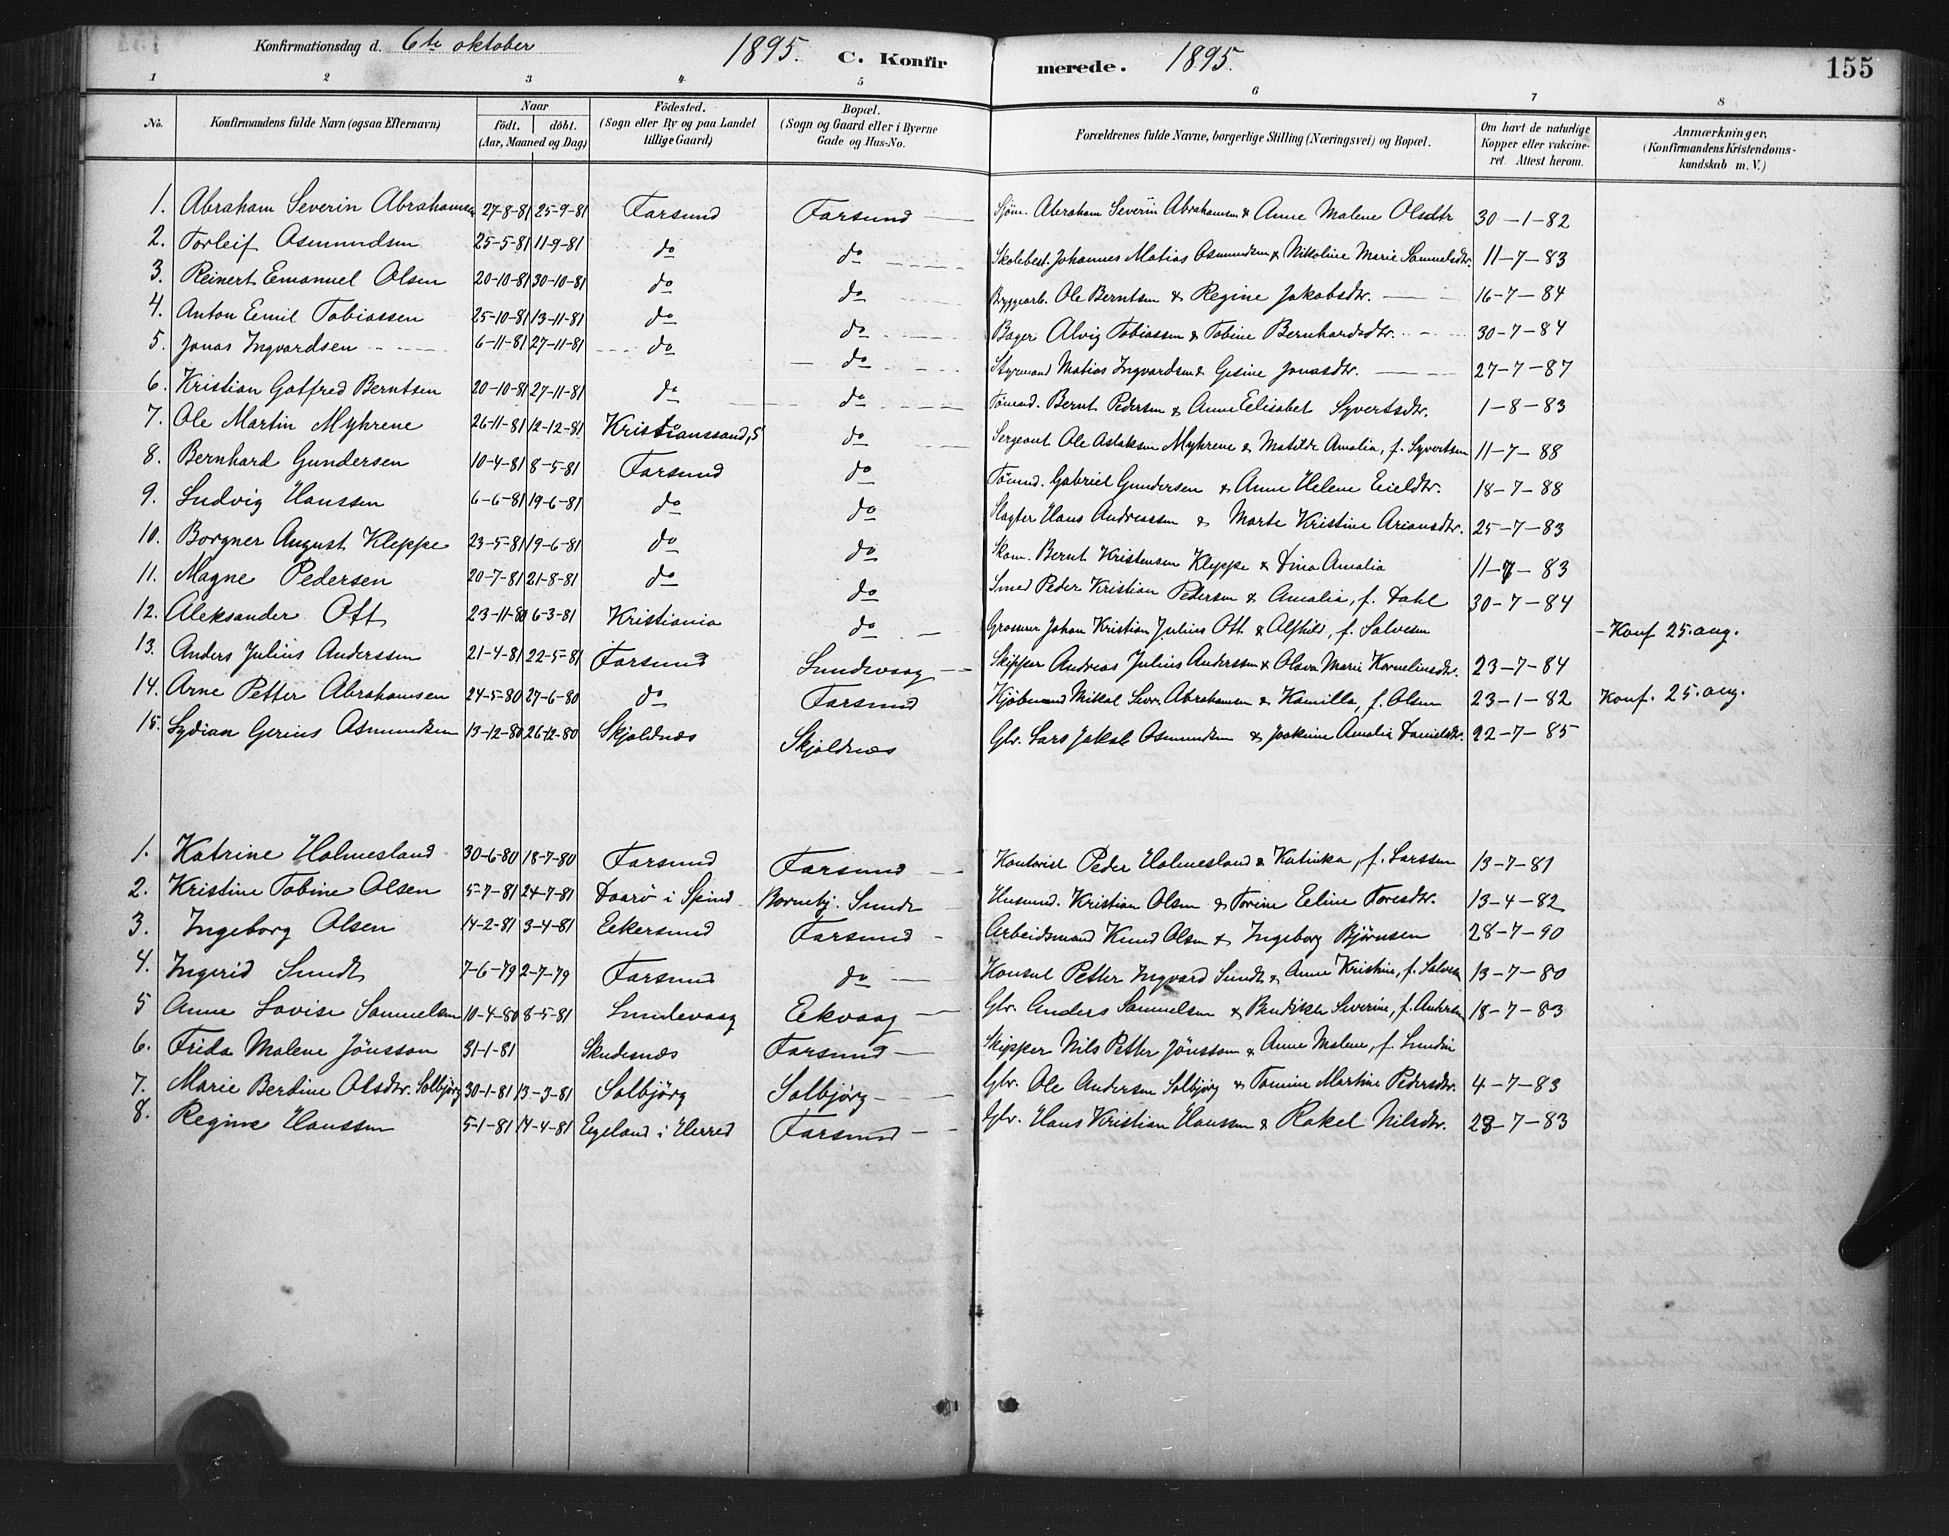 Konfirmationsdag d. 6te oktober 1895. C. Konfirmerede. 1895. 155
1 2 3 4 5 6 7 8
No. Konfirmandens fulde Navn (ogsaa Efternavn) Naar födt. döbt. (Aar, Maaned og Dag) Födested. (Sogn eller By og paa Landet tillige Gaard) Bopæl. (Sogn og Gaard eller i Byerne Gade og Hus-No. Forældrenes fulde Navne, borgerlige Stilling (Næringsvei) og Bopæl. Om havt de naturlige Kopper eller vakcineret. Attest herom. Anmærkninger. (Konfirmandens Kristendomskundskab m. V.)
1. Abraham Severin Abrahamsen 27-8-81 25-9-81 Farsund Farsund Sjöm. Abraham Severin Abrahamsen & Anne Malene Olsdtr 30-1-82
2. Torleif Asmundsen 25-5-81 11-9-81 do do Skolebest. Johannes Matias Asmundsen & Nikoline Marie Samuelsdtr. 11-7-83
3. Reinert Emanuel Olsen 20-10-81 30-10-81 do do Byggearb. Ole Berntsen & Regine Jakobsdtr. 16-7-84
4. Anton Emil Tobiassen 25-10-81 13-11-81 do do Bager Alvig Tobiassen & Tobine Bernhardsdtr. 30-7-84
5. Jonas Ingvardsen 6-11-81 27-11-81 do do Styrmand Matias Ingvardsen & Gesine Jonasdtr. 27-7-87
6. Kristian Gotfred Berntsen 20-10-81 27-11-81 do do Tömmd. Bernt Pedersen & Anne Elisabet Syvertsdtr. 1-8-83
7. Ole Martin Myhrene 26-11-81 12-12-81 Kristianssand, S do Sergeant Ole Aslaksen Myhrene & Matilde Amalia, f. Syvertsen 11-7-88
8. Bernhard Gundersen 10-4-81 8-5-81 Farsund do Tömmd. Gabriel Gundersen & Anne Helene Eieldtr. 18-7-88
9. Ludvig Hanssen 6-6-81 19-6-81 do do Slagter Hans Andreassen & Marte Kristine Ariansdtr. 25-7-83
10. Borgner August Kleppe 23-5-81 19-6-81 do do Skom. Bernt Kristensen Kleppe & Dina Amalia 11-7-83
11. Magne Pedersen 20-7-81 21-8-81 do do Smed Peder Kristian Pedersen & Amalia, f. Dahl 30-7-84
12. Aleksander Ott 23-11-80 6-3-81 Kristiania do Grosserer Johan Kristian Julius Ott & Alfhild, f. Salvesen - Konf 25. aug.
13. Anders Julius Anderssen 21-4-81 22-5-81 Farsund Lundevaag Skipper Andreas Julius Anderssen & Olava Marie Korneliusdtr. 23-7-84
14. Arne Petter Abrahamsen 24-5-80 27-6-80 do Farsund Kjöbmand Mikal Sevr. Abrahamsen & Kamilla, f. Olsen 23-1-82 Konf. 25. aug.
15. Lydian Gerius Asmundsen 13-12-80 26-12-80 Skjoldnæs Skjoldnæs Gbr. Lars Jakob Asmundsen & Joakime Amalia Danielsdtr. 22-7-85
1. Katrine Holmesland 30-6-80 18-7-80 Farsund Farsund Kontorist Peder Holmesland & Katinka, f. Larssen 13-7-81
2. Kristine Tobine Olsen 5-7-81 24-7-81 Daarö i Spind Bornehj. Sunde Husmd. Kristian Olsen & Torine Eline Toresdtr. 13-4-82
3. Ingeborg Olsen 14-2-81 3-4-81 Ekersund Farsund Arbeidsmand Knud Olsen & Ingeborg Björnsen 28-7-90
4. Ingerid Sundt 7-6-79 2-7-79 Farsund do Konsul Petter Ingvard Sundt & Anne Kristine, f. Salvesen 13-7-80
5 Anne Lovise Samuelsen 10-4-80 8-5-81 Lundevaag Ekvaag Gbr. Anders Samuelsen & Bendikte Severine, f. Andersen 18-7-83
6. Frida Malene Jönsson 31-1-81 Skudesnæs Farsund Skipper Nils Petter Jönsson & Anne Malene, f. Lundin
7. Marie Bertine Olsdtr. Solbjörg 30-1-81 13-3-81 Solbjörg Solbjörg Gbr. Ole Andersen Solbjörg & Tomine Martine Pedersdtr. 4-7-83
8. Regine Hanssen 5-1-81 17-4-81 Eegeland i Herred Farsund Gbr. Hans Kristian Hanssen & Rakel Nilsdtr. 23-7-83